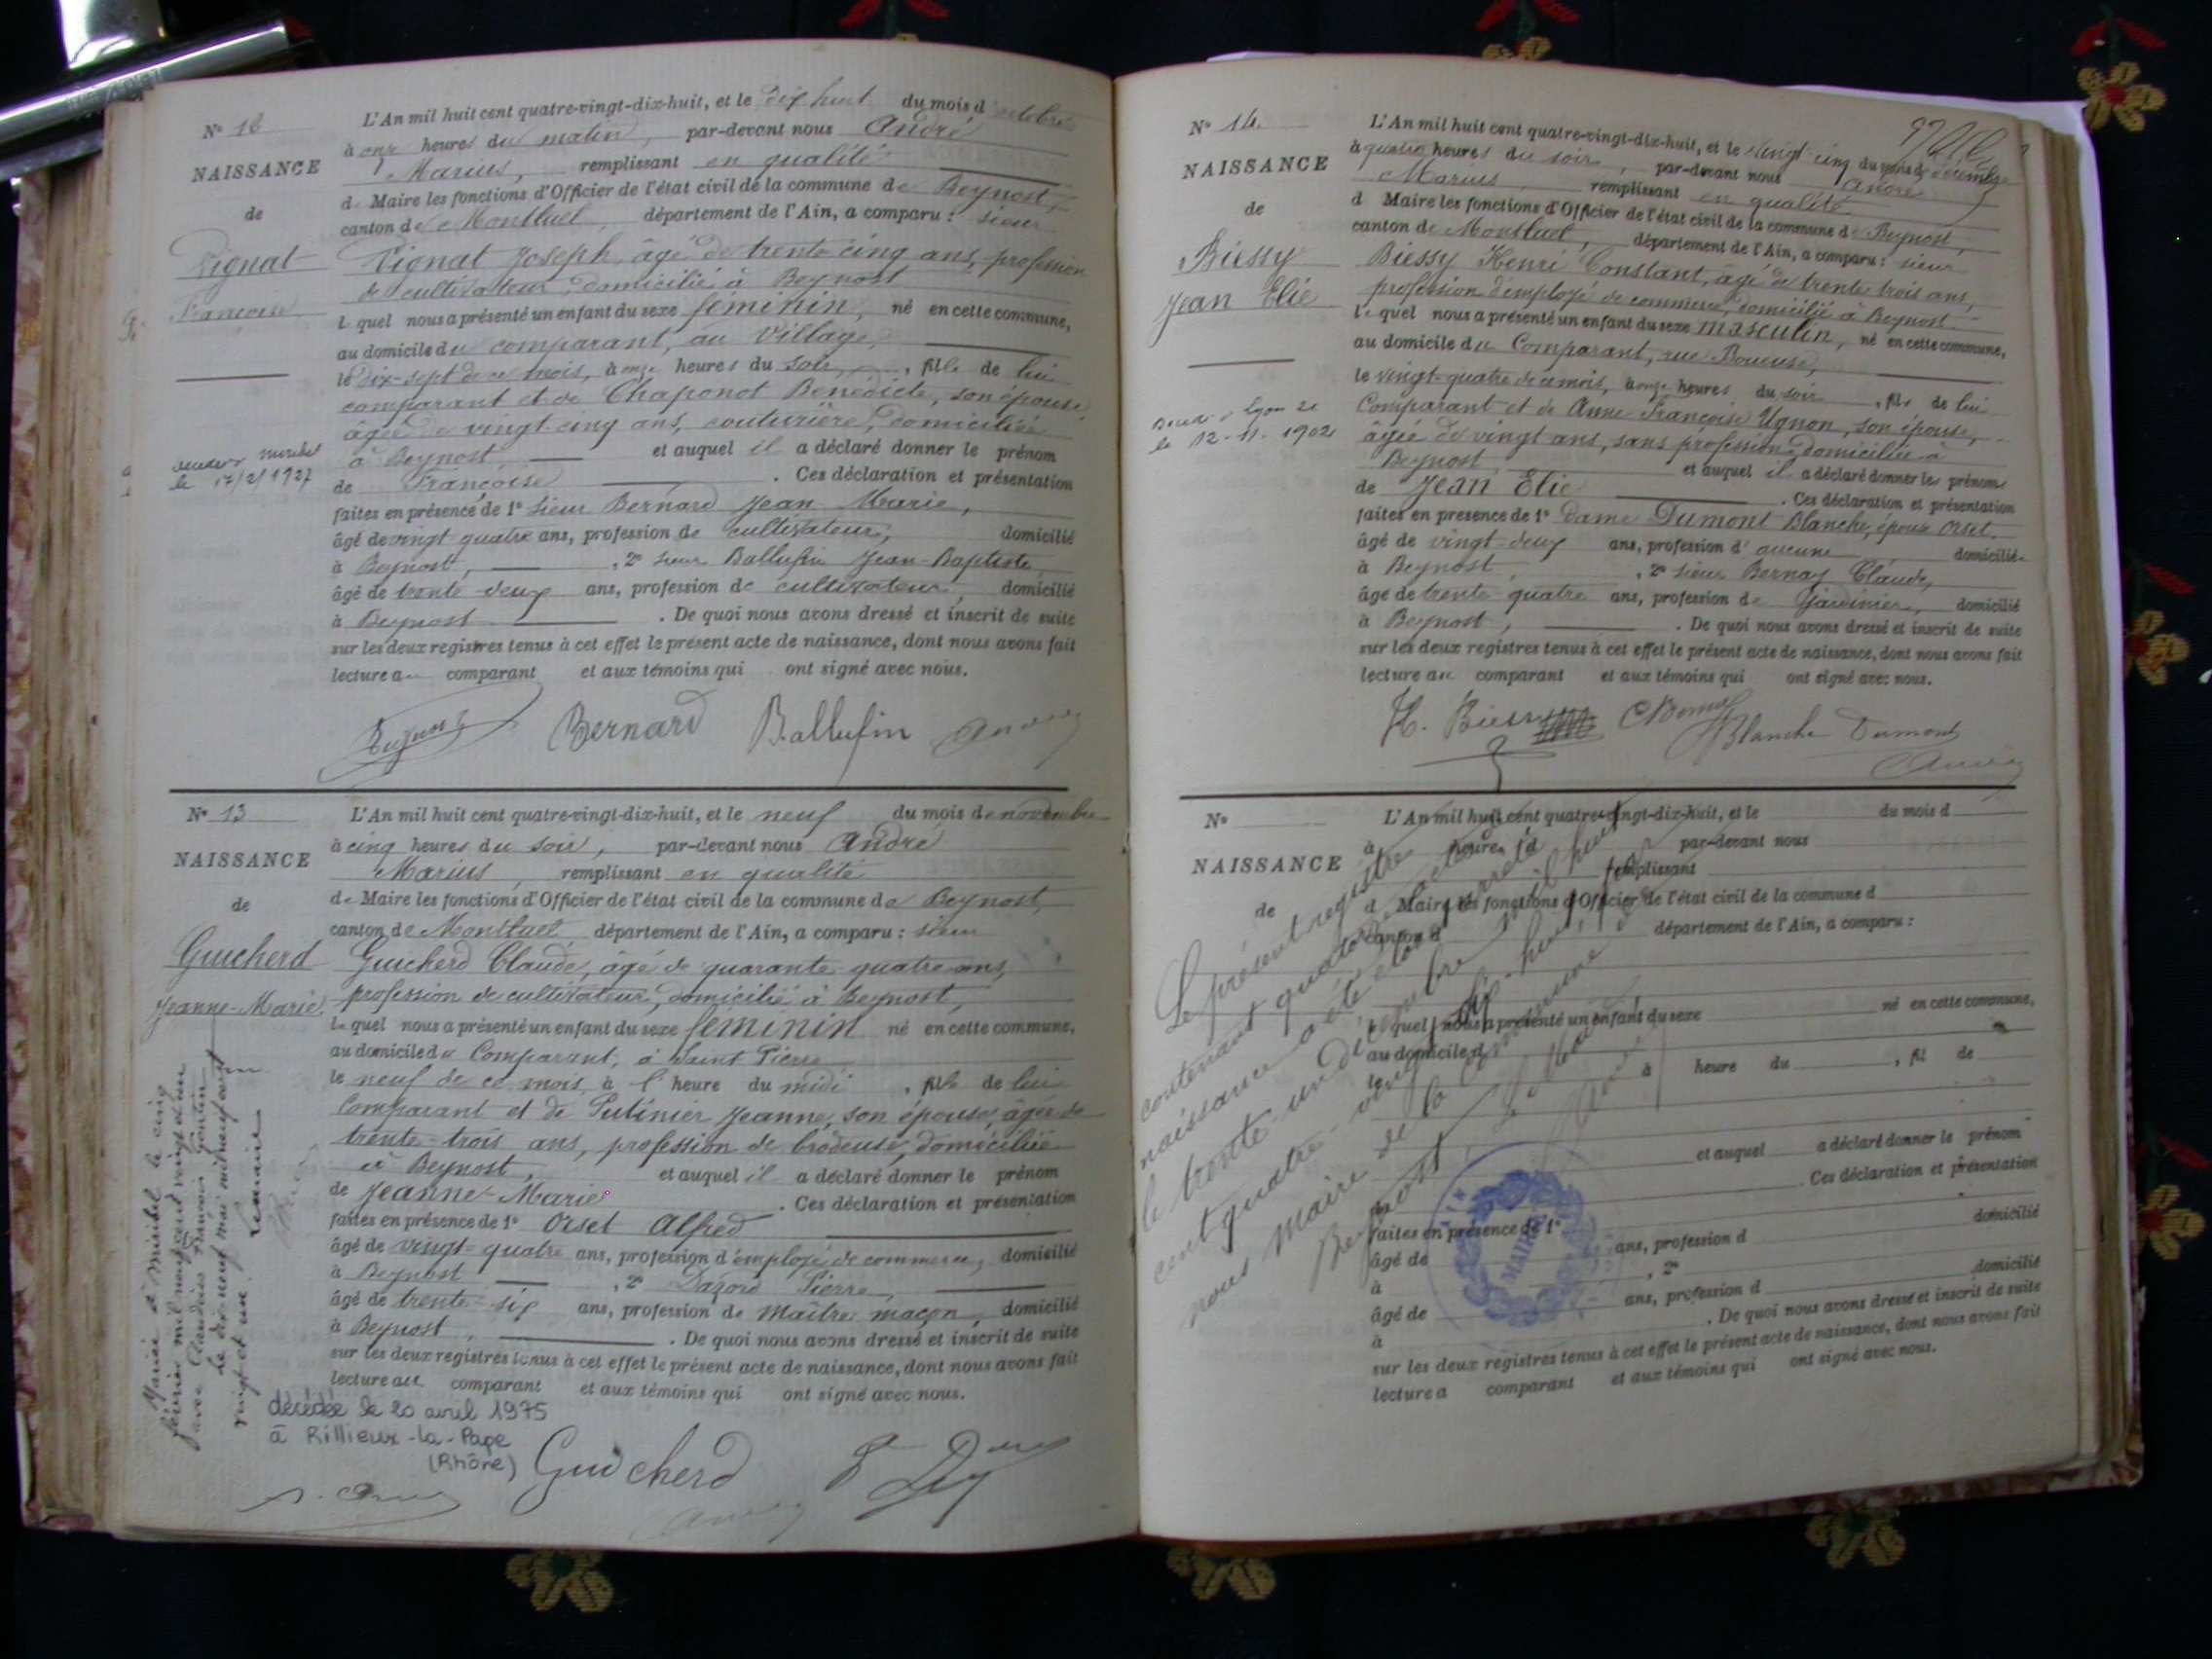 N° 12
L'An mil huit cent quatre-vingt-dix-huit, et le dix huit du mois d'octobre
à onze heures du matin, par-devant nous André
NAISSANCE
Marius, remplissant en qualité
de Maire les fonctions d'Officier de l'état civil de la commune de Beynost,
de
canton de Montluel, département de l'Ain, a comparu : sieur
Pignat
Françoise
Pignat Joseph, âgé de trente cinq ans, profession
de cultivateur, domicilié à Beynost
lequel nous a présenté un enfant du sexe féminin, né en cette commune,
au domicile du comparant, au Village,
le dix-sept de ce mois, à onze heures du soir, fille de lui
comparant et de Chaponot Benédicte, son épouse
âgée de vingt-cinq ans, couturière, domiciliée
à Beynost et auquel il a déclaré donner le prénom
le 17/2/1927
de Françoise. Ces déclaration et présentation
faites en présence de 1° sieur Bernard Jean Marie,
âgé de vingt quatre ans, profession de cultivateur, domicilié
à Beynost, 2° sieur Ballufin Jean-Baptiste
âgé de trente-deux ans, profession de cultivateur, domicilié
à Beynost. De quoi nous avons dressé et inscrit de suite
sur les deux registres tenus à cet effet le présent acte de naissance, dont nous avons fait
lecture au comparant et aux témoins qui ont signé avec nous.
Bernard Ballufin André
N° 13
L'An mil huit cent quatre-vingt-dix-huit, et le neuf du mois de novembre
à cinq heures du soir, par-devant nous André
NAISSANCE
Marius, remplissant en qualité
de Maire les fonctions d'Officier de l'état civil de la commune de Beynost,
de
canton de Montluel département de l'Ain, a comparu : sieur
Guicherd
Jeanne-Marie
Guicherd Claude, âgé de quarante quatre ans,
profession de cultivateur, domicilié à Beynost,
lequel nous a présenté un enfant du sexe féminin né en cette commune,
au domicile du Comparant, à Saint Pierre
le neuf de ce mois à l'heure du midi, fille de lui
comparant et de Putinier Jeanne, son épouse, âgée de
trente-trois ans, profession de brodeuse, domiciliée
à Beynost, et auquel il a déclaré donner le prénom
de Jeanne-Marie. Ces déclaration et présentation
faites en présence de 1° Orset Alfred
âgé de vingt-quatre ans, profession d'employé de commerce, domicilié
à Beynost, 2° Dazord Pierre,
âgé de trente-six ans, profession de Maître maçon, domicilié
à Beynost, . De quoi nous avons dressé et inscrit de suite
sur les deux registres tenus à cet effet le présent acte de naissance, dont nous avons fait
lecture au comparant et aux témoins qui ont signé avec nous.
Mariée à Miribel le cinq
février mil neuf cent vingt et un
avec Claudius François
le dix-neuf mai mil neuf cent
vingt et un. Le maire
décédée le 20 avril 1975
à Rillieux-la-Pape
(Rhône)
Guicherd
N° 14
L'An mil huit cent quatre-vingt-dix-huit, et le vingt cinq du mois de Décembre
à quatre heures du soir, par-devant nous André
NAISSANCE
Marius remplissant en qualité
d Maire les fonctions d'Officier de l'état civil de la commune de Beynost,
de
canton de Montluel, département de l'Ain, a comparu : sieur
Biessy
Jean Elie
Biessy Henri Constant, âgé de trente trois ans,
profession d'employé de commerce, domicilié à Beynost
lequel nous a présenté un enfant du sexe masculin, né en cette commune,
au domicile du Comparant, rue Boueuse,
le vingt-quatre de ce mois, à onze heures du soir, fils de lui
Lyon 2e
le 12-11-1902
Comparant et de Anne Françoise Ugnon, son épouse,
âgée de vingt ans, sans profession, domiciliée à
Beynost et auquel il a déclaré donner les prénoms
de Jean Elie. Ces déclaration et présentation
faites en présence de 1° Dame Dumont Blanche, épouse Orset
âgé de vingt-deux ans, profession d'aucune domicilié
à Beynost, 2° sieur Bernay Claude,
âgé de trente quatre ans, profession de Jardinier, domicilié
à Beynost, . De quoi nous avons dressé et inscrit de suite
sur les deux registres tenus à cet effet le présent acte de naissance, dont nous avons fait
lecture au comparant et aux témoins qui ont signé avec nous.
H. Biessy
Blanche Dumont
André
N°
L'An mil huit cent quatre-vingt-dix-huit, et le du mois d
à heure d par-devant nous
NAISSANCE
remplissant
de
d Maire les fonctions d'Officier de l'état civil de la commune d
canton d département de l'Ain, a comparu :
lequel nous a présenté un enfant du sexe né en cette commune,
au domicile d
le à heure du , fil de
et auquel a déclaré donner le prénom
de . Ces déclaration et présentation
faites en présence de 1°
âgé de ans, profession d domicilié
à , 2°
âgé de ans, profession d domicilié
à . De quoi nous avons dressé et inscrit de suite
sur les deux registres tenus à cet effet le présent acte de naissance, dont nous avons fait
lecture a comparant et aux témoins qui ont signé avec nous.
Le présent registre
contenant quatorze actes de
naissance a été clos et arrêté
le trente-un décembre mil huit
cent quatre-vingt-dix-huit, par
nous Maire de la commune de
Beynost
Le Maire
André
MAIRIE